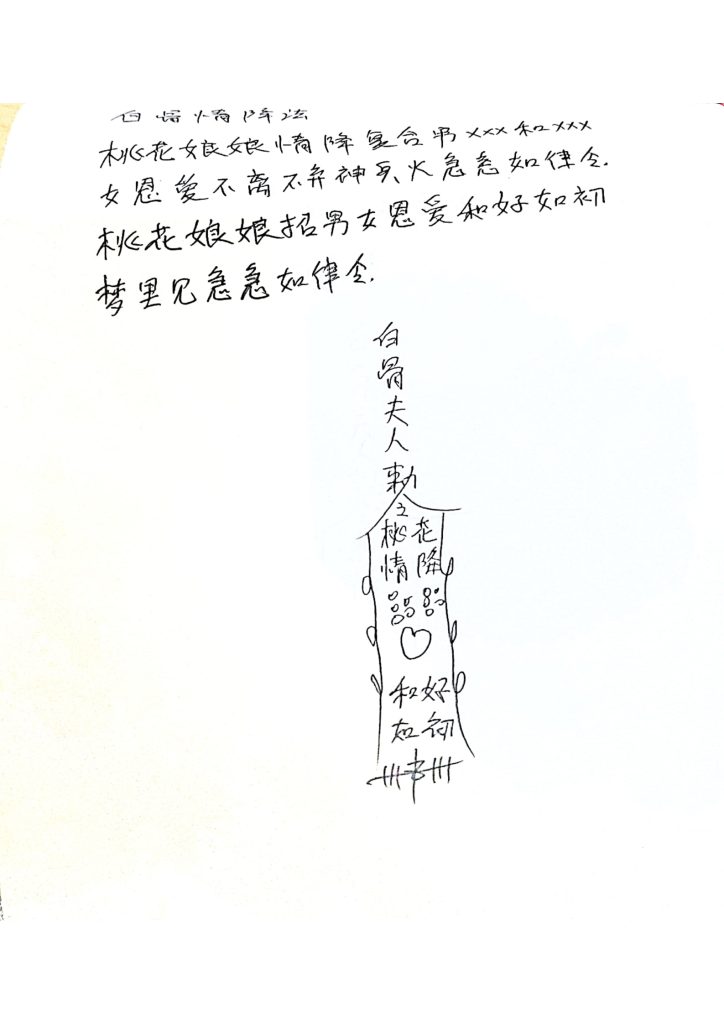 白骨情降法
桃花娘娘情降复合男xxx和xxx
女恩爱不离不弃神兵火急急如律令.
桃花娘娘招男女恩爱和好如初
梦里见急急如律令.
白骨夫人敕
桃花
情降
和好
如初